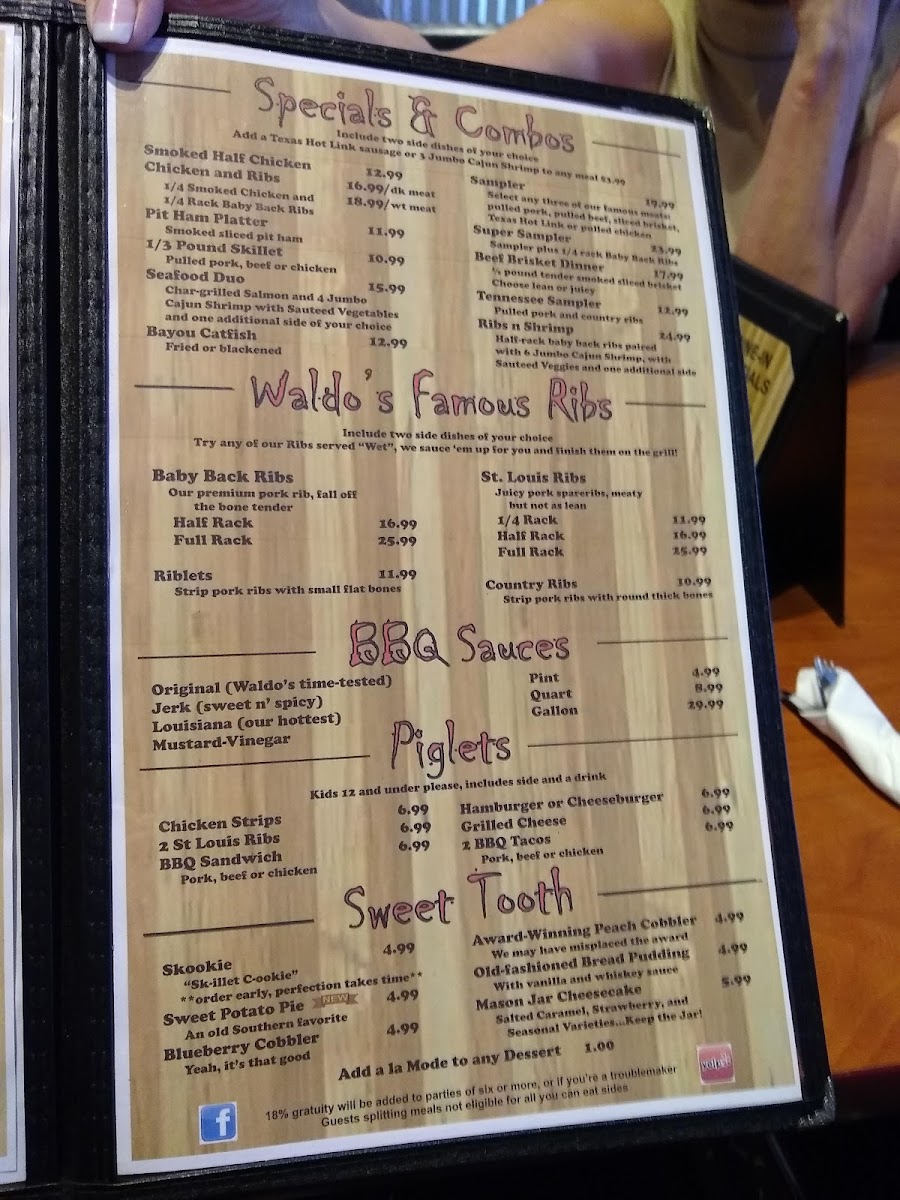 Specials & Combos
Include two side dishes of your choice
Add a Texas Hot Link sausage or 3 Jumbo Cajun Shrimp to any meal $3.99
Smoked Half Chicken 12.99
Chicken and Ribs 16.99/dk meat
1/4 Smoked Chicken and 18.99/wt meat
1/4 Rack Baby Back Ribs
Pit Ham Platter 11.99
Smoked sliced pit ham
1/3 Pound Skillet 10.99
Pulled pork, beef or chicken
Seafood Duo 15.99
Char-grilled Salmon and 4 Jumbo
Cajun Shrimp with Sauteed Vegetables
and one additional side of your choice
Bayou Catfish 12.99
Fried or blackened
Sampler 19.99
Select any three of our famous meats:
pulled pork, pulled beef, sliced brisket,
Texas Hot Link or pulled chicken
Super Sampler 23.99
Sampler plus 1/4 rack Baby Back Ribs
Beef Brisket Dinner 17.99
pound tender smoked sliced brisket
Choose lean or juicy
Tennessee Sampler 12.99
Pulled pork and country ribs
Ribs n Shrimp 24.99
Half-rack baby back ribs paired
with 6 Jumbo Cajun Shrimp, with
Sauteed Veggies and one additional side
Waldo's Famous Ribs
Include two side dishes of your choice
Try any of our Ribs served "Wet", we sauce 'em up for you and finish them on the grill!
Baby Back Ribs
Our premium pork rib, fall off
the bone tender
Half Rack 16.99
Full Rack 25.99
Riblets 11.99
Strip pork ribs with small flat bones
St. Louis Ribs
Juicy pork spareribs, meaty
but not as lean
1/4 Rack 11.99
Half Rack 16.99
Full Rack 25.99
Country Ribs 10.99
Strip pork ribs with round thick bones
BBQ Sauces
Original (Waldo's time-tested)
Jerk (sweet n' spicy)
Louisiana (our hottest)
Mustard-Vinegar
Pint 4.99
Quart 8.99
Gallon 29.99
Piglets
Kids 12 and under please, includes side and a drink
Chicken Strips 6.99
2 St Louis Ribs 6.99
BBQ Sandwich 6.99
Pork, beef or chicken
Hamburger or Cheeseburger 6.99
Grilled Cheese 6.99
2 BBQ Tacos 6.99
Pork, beef or chicken
Sweet Tooth
Skookie 4.99
"Sk-illet C-ookie"
**order early, perfection takes time**
Sweet Potato Pie NEW 4.99
An old Southern favorite
Blueberry Cobbler 4.99
Yeah, it's that good
Award-Winning Peach Cobbler 4.99
We may have misplaced the award
Old-fashioned Bread Pudding 4.99
With vanilla and whiskey sauce
Mason Jar Cheesecake 5.99
Salted Caramel, Strawberry, and
Seasonal Varieties...Keep the Jar!
Add a la Mode to any Dessert 1.00
18% gratuity will be added to parties of six or more, or if you're a troublemaker
Guests splitting meals not eligible for all you can eat sides
f
yelp